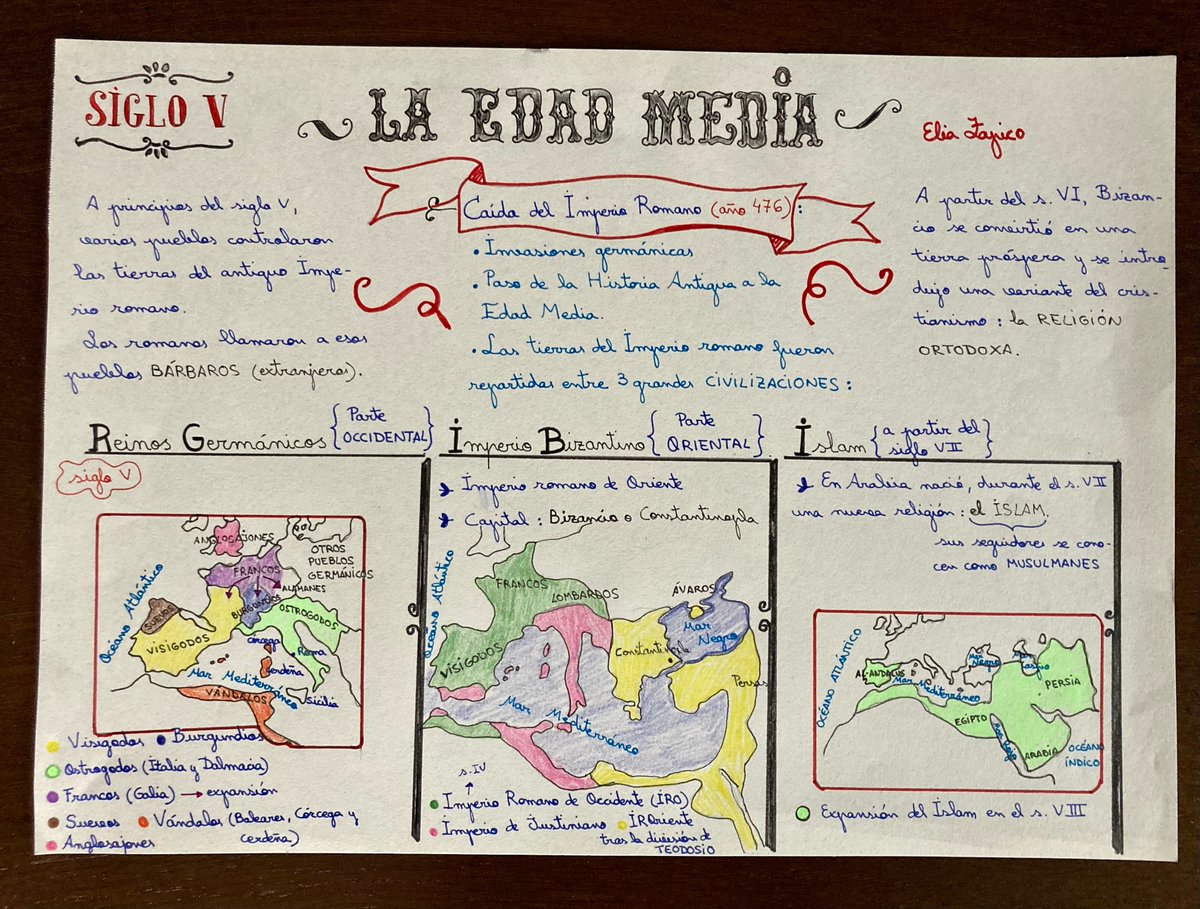 SIGLO V
LA EDAD MEDIA
Elia Zapico
A principios del siglo V,
varios pueblos controlaron
las tierras del antiguo Impe-
rio romano.
Los romanos llamaron a esos
pueblos BÁRBAROS (extranjeros).
Caída del Imperio Romano (año 476):
• Invasiones germánicas
• Paso de la Historia Antigua a la
Edad Media.
• Las tierras del Imperio romano fueron
repartidas entre 3 grandes CIVILIZACIONES:
A partir del s. VI, Bizan-
cio se convirtió en una
tierra próspera y se intro-
dujo una variante del cris-
tianismo: la RELIGIÓN
ORTODOXA.
Reinos Germánicos {Parte
OCCIDENTAL}
siglo V
ANGLOSAJONES
OTROS
PUEBLOS
GERMÁNICOS
FRANCOS
ALAMANES
BURGUNDIOS
OSTROGODOS
SUEVOS
VISIGODOS
Océano Atlántico
Córcega
Roma
Cerdeña
Mar Mediterráneo
Sicilia
VÁNDALOS
Visigodos
Burgundios
Ostrogodos (Italia y Dalmacia)
Francos (Galia) → expansión
Suevos
Vándalos (Baleares, Córcega y
Cerdeña)
Anglosajones
Imperio Bizantino {Parte
ORIENTAL}
Imperio romano de Oriente
Capital: Bizancio o Constantinopla
Océano Atlántico
FRANCOS
LOMBARDOS
ÁVAROS
Mar
Negro
VISIGODOS
Constantinopla
Persas
Mar Mediterráneo
s. IV
Imperio Romano de Occidente (IRO)
Imperio de Justiniano
IROriente
tras la división de
TEODOSIO
Islam {a partir del
siglo VII}
En Arabia nació, durante el s. VII
una nueva religión: el ISLAM.
sus seguidores se cono-
cen como MUSULMANES
OCÉANO ATLÁNTICO
AL-ANDALUS
Mar Mediterráneo
Mar
Negro
Mar
Caspio
PERSIA
EGIPTO
Mar Rojo
ARABIA
OCÉANO
ÍNDICO
Expansión del Islam en el s. VIII